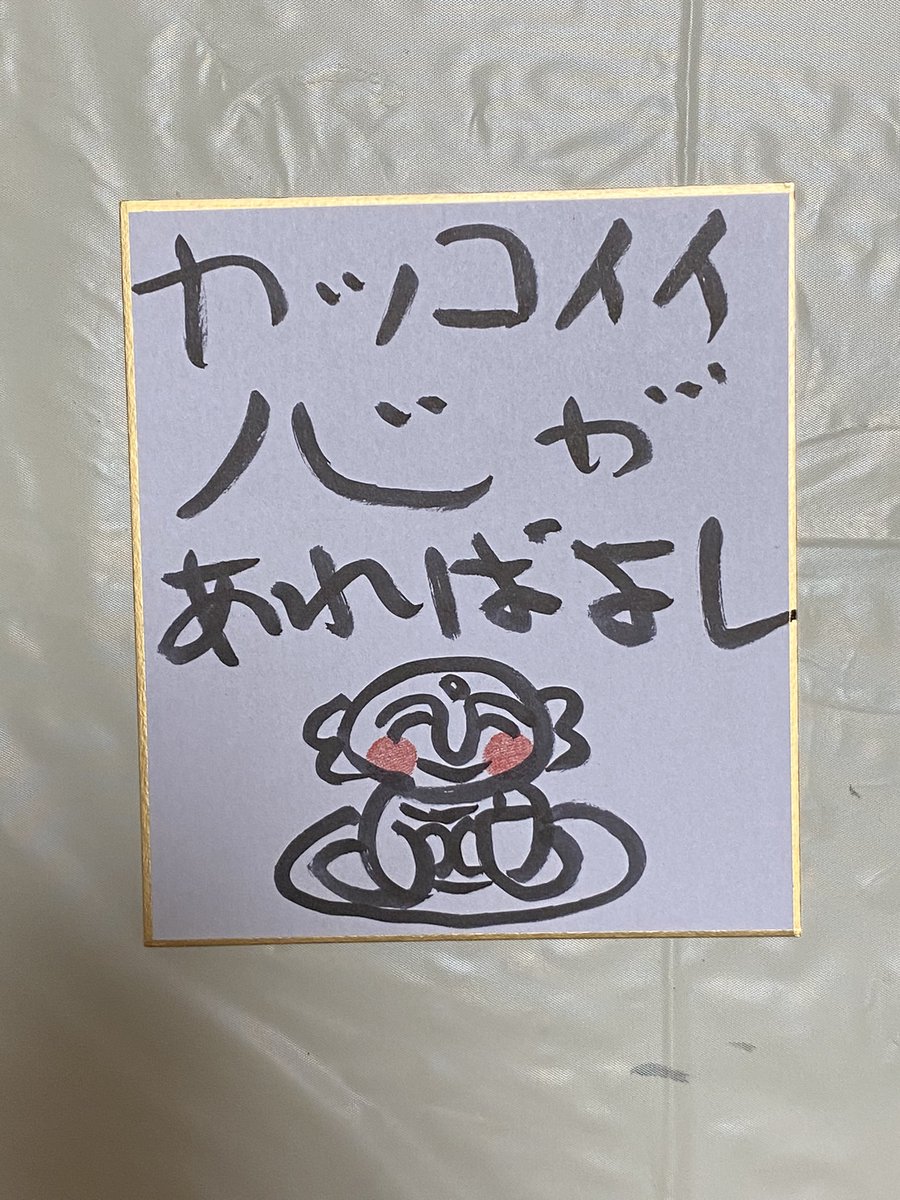 カッコイイ
心が
あればよし